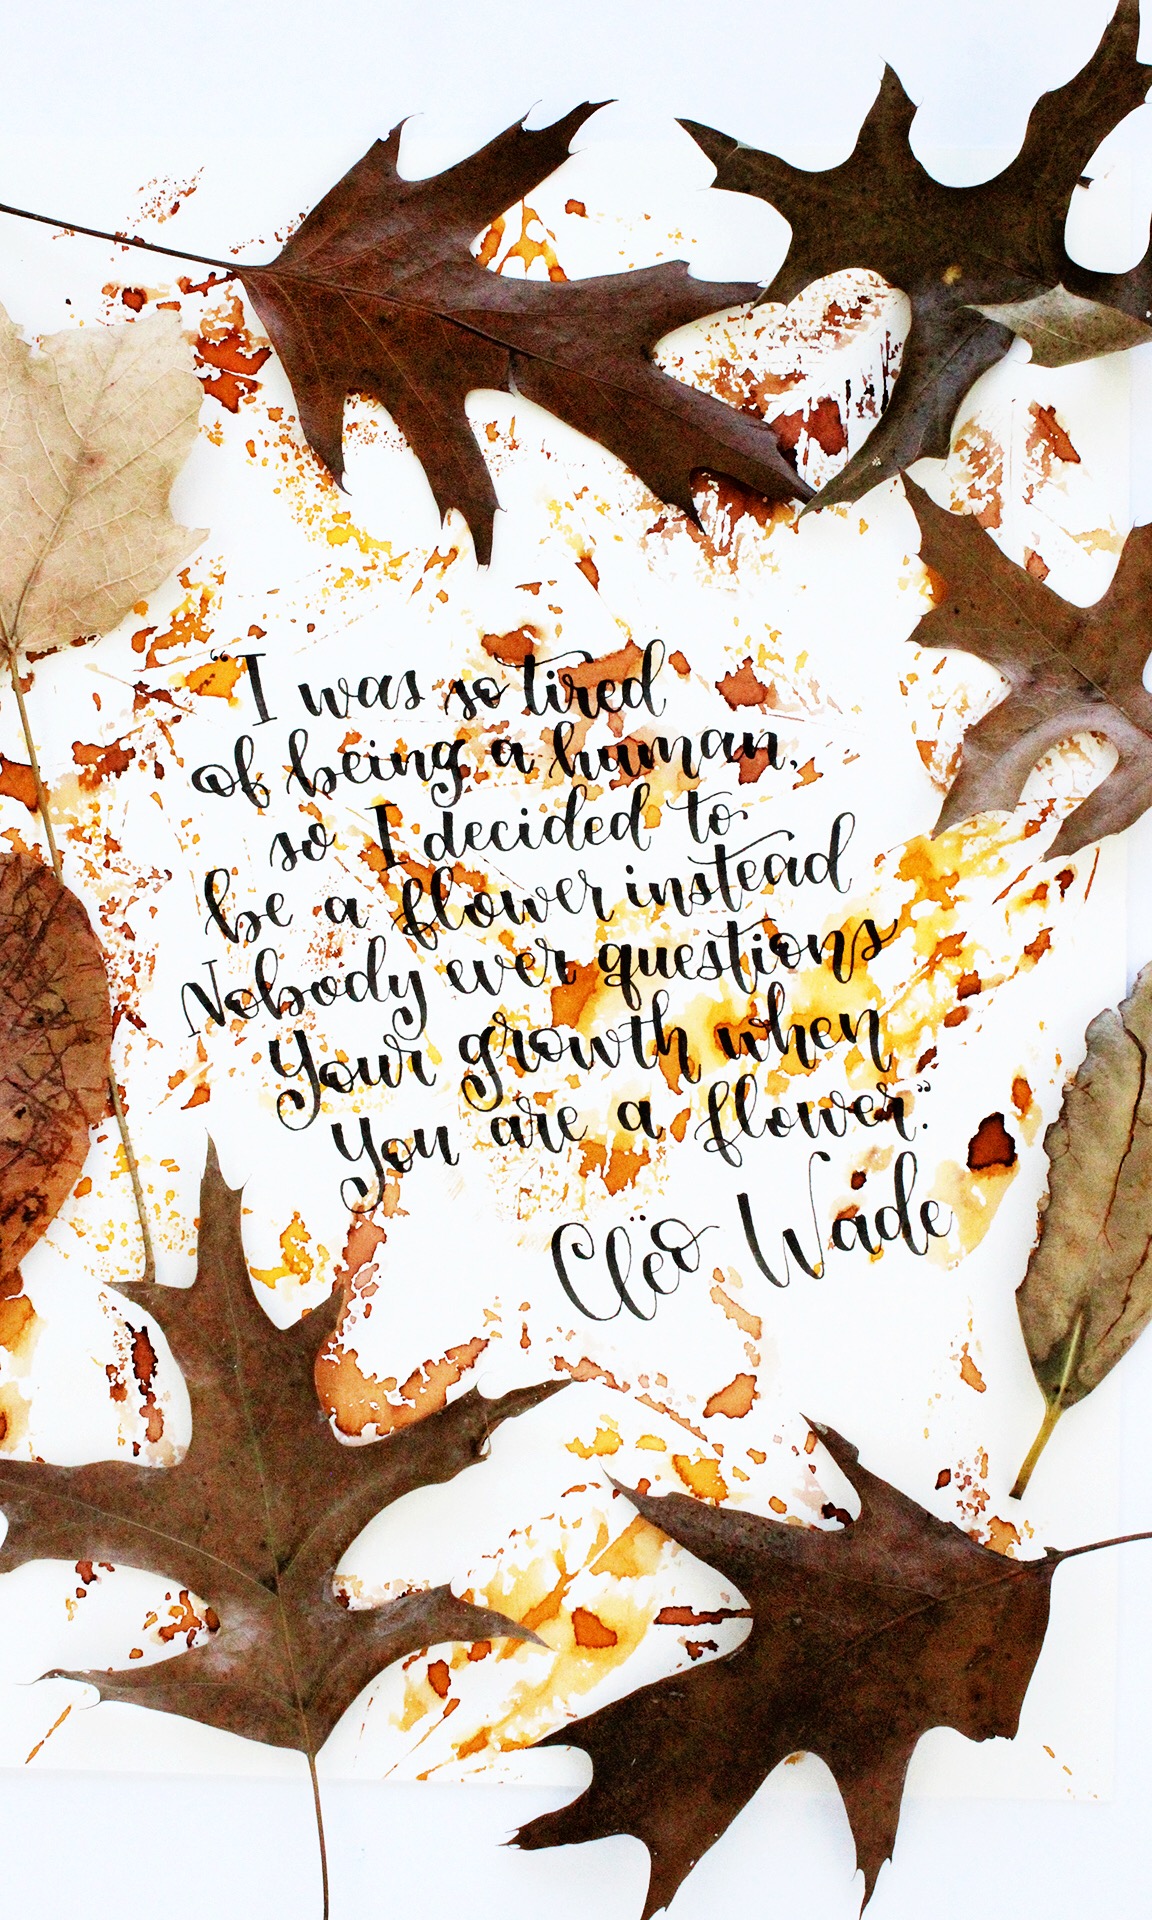 "I was so tired
of being a human,
so I decided to
be a flower instead
Nobody ever questions
Your growth when
You are a flower."
Clëo Wade